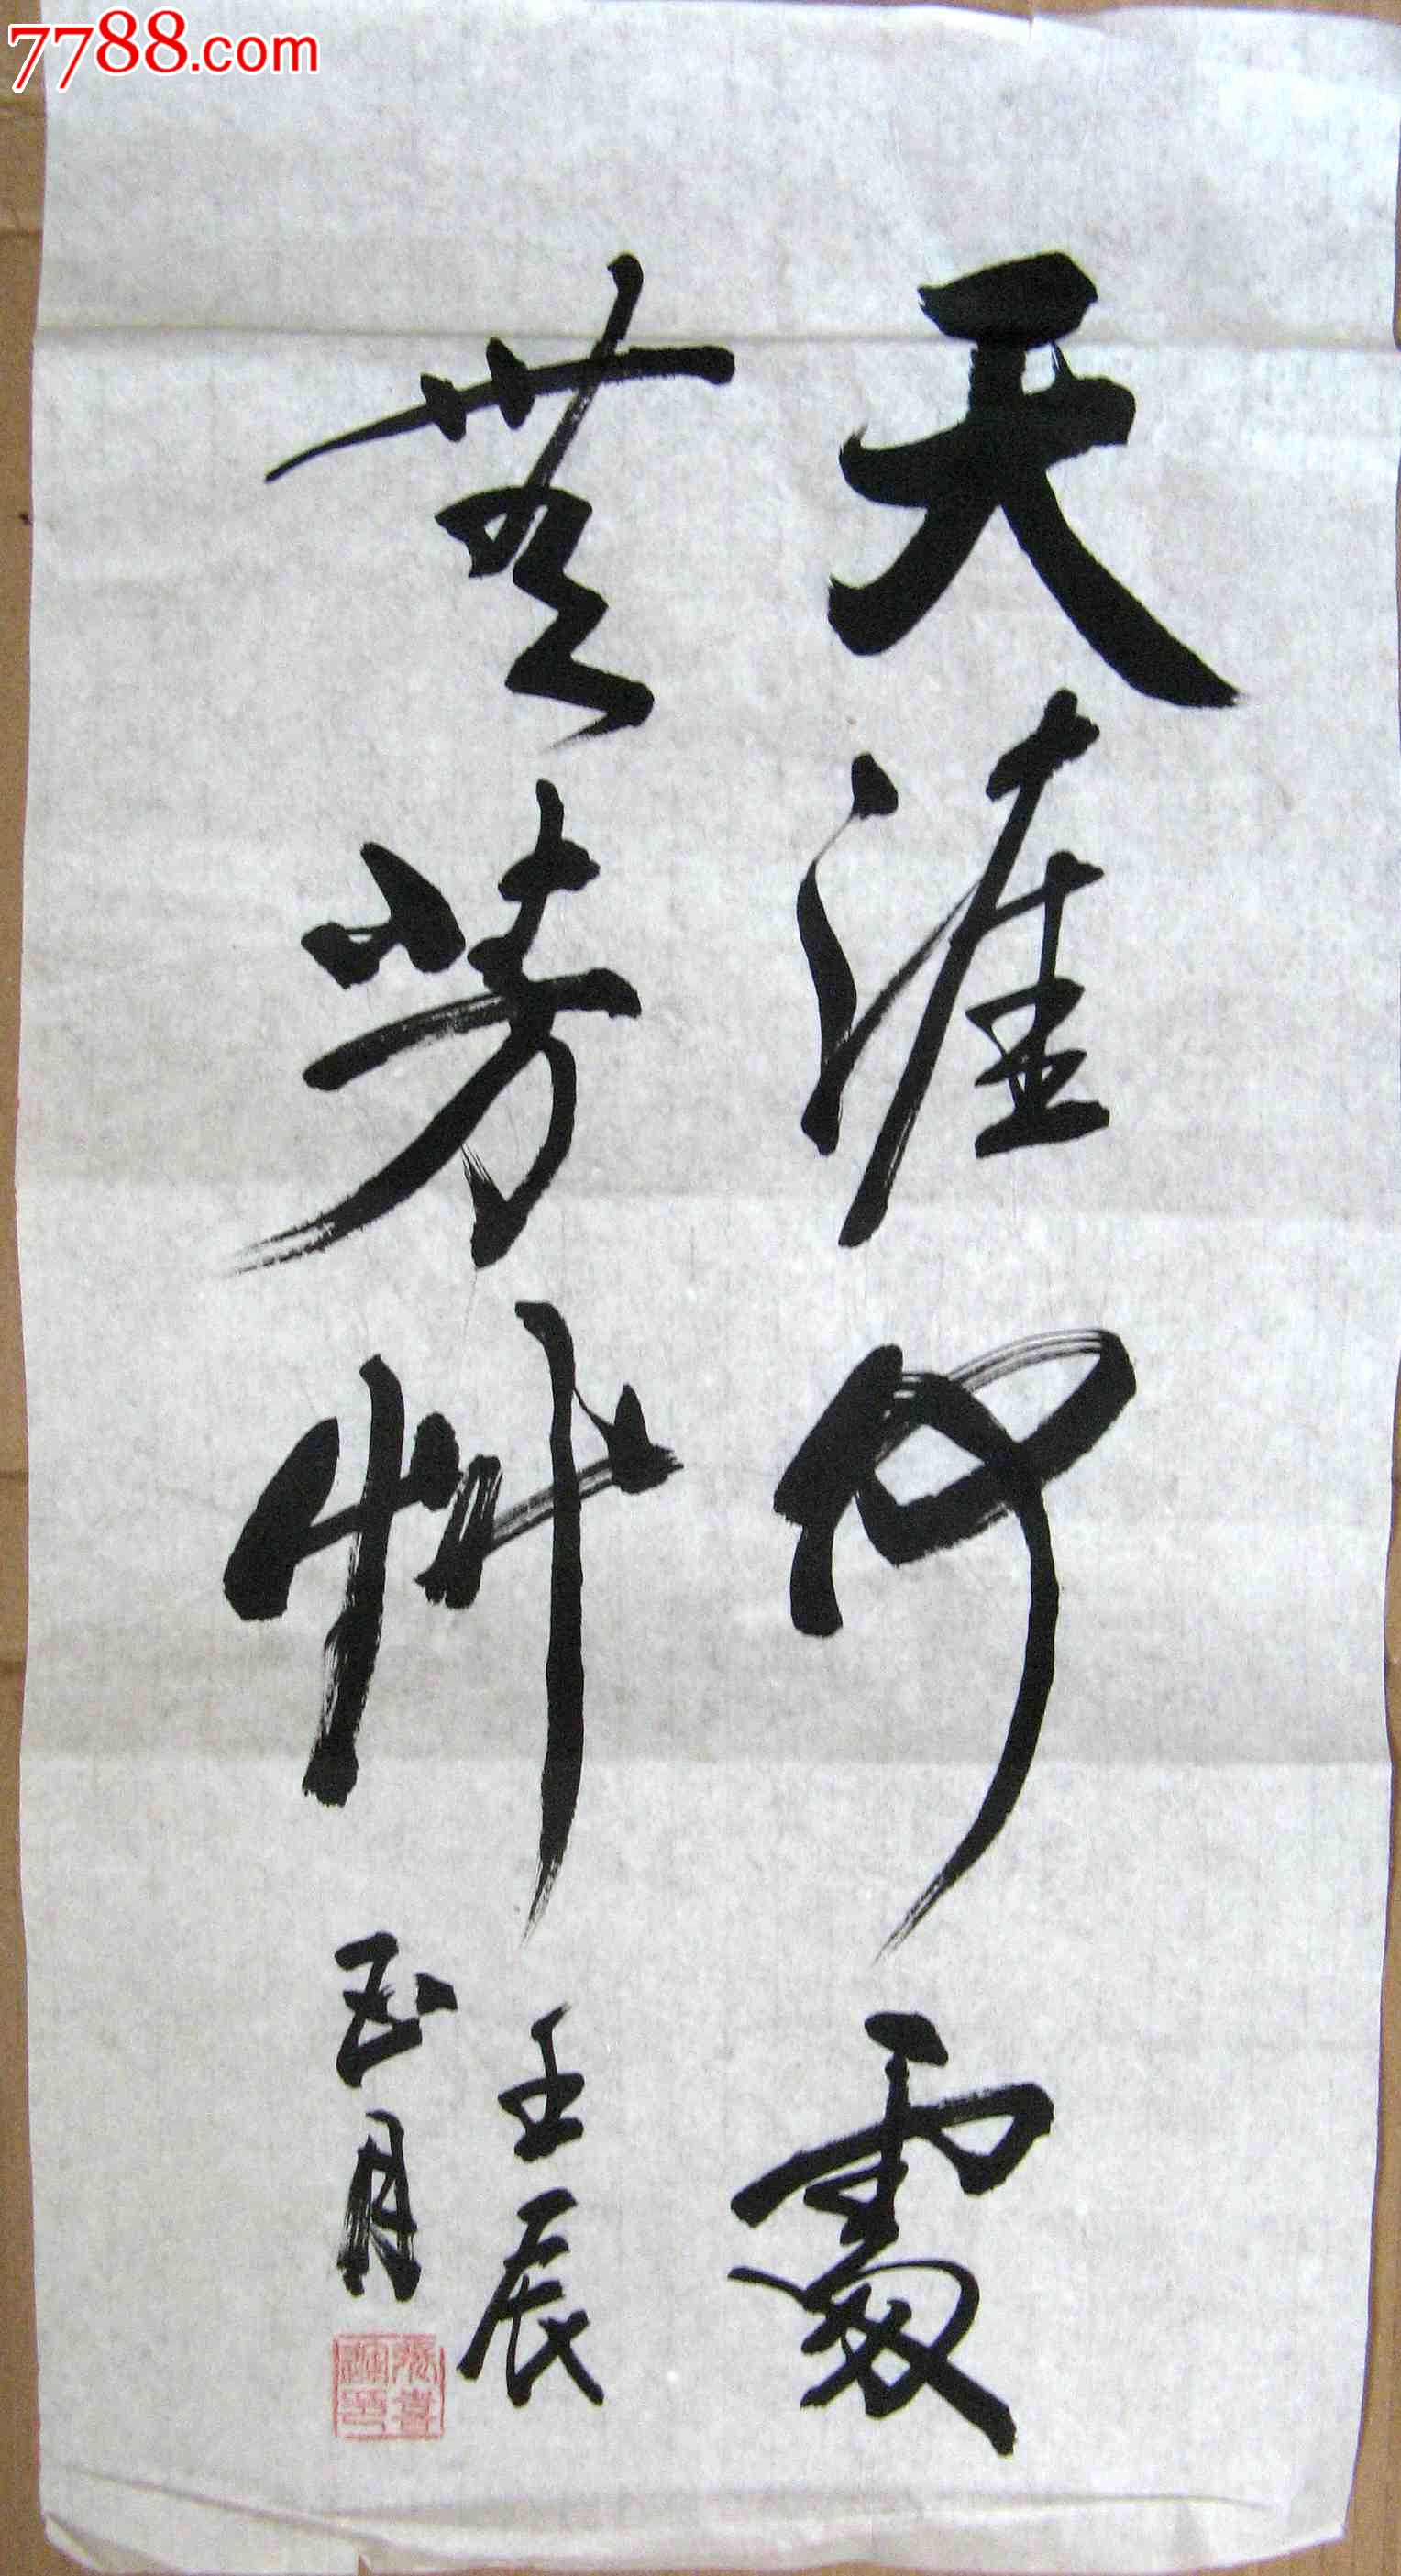 7788.com
天涯何處
無芳艸
壬辰
正月